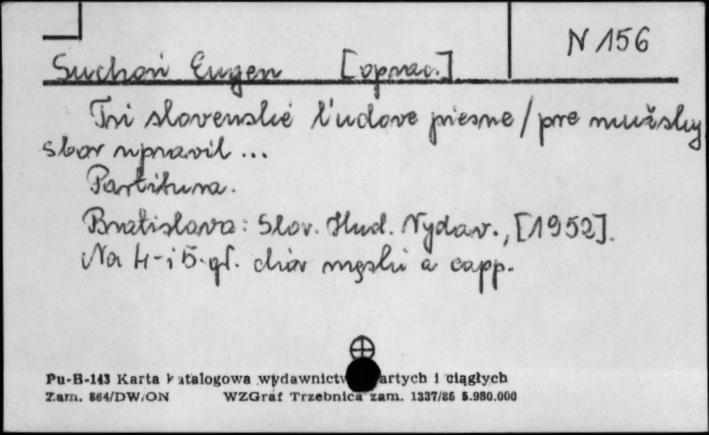 N 156
Suchoń Eugen [oprac.]
Tri slovenské l'udove piesne / pre mužsky
sbor upravil ...
Partitura.
Bratislava: Slov. Hud. Vydav., [1952].
Na 4-i 5-gł. chór męski a capp.
Pu-B-143 Karta katalogowa wydawnictw zwartych i ciągłych
Zam. 864/DW/ON WZGraf Trzebnica zam. 1337/86 5.980.000